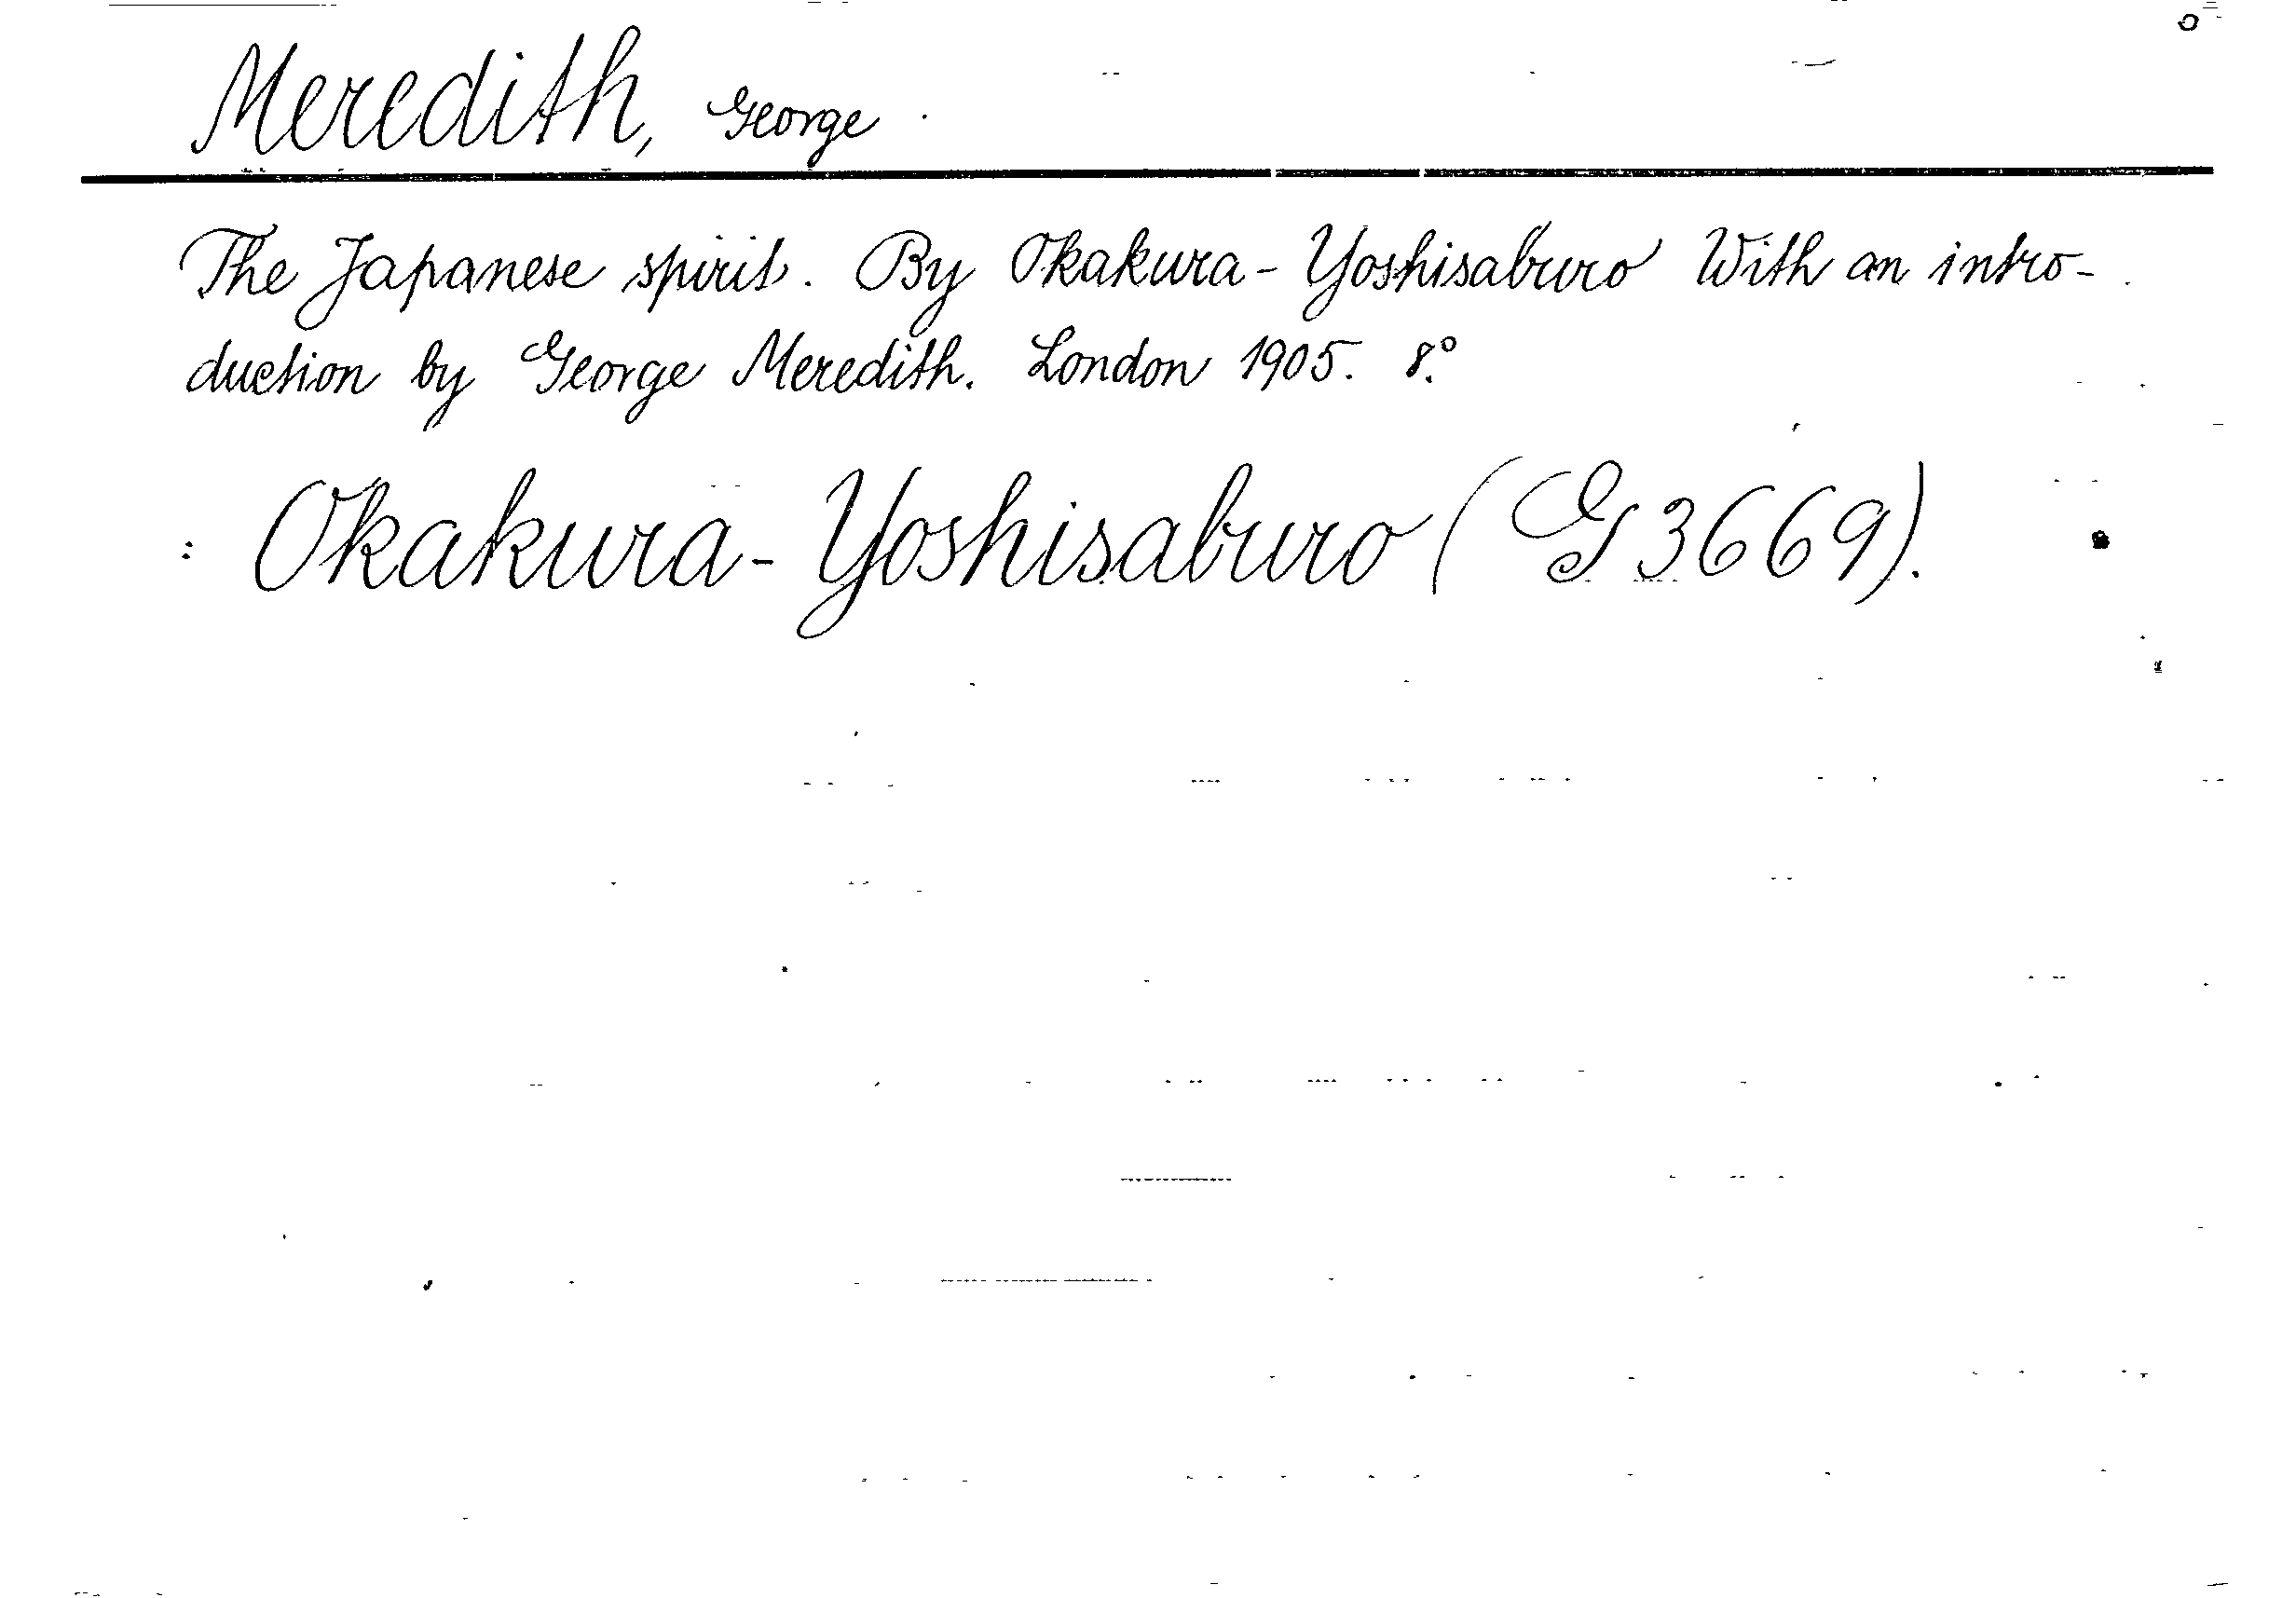 Meredith, George
The Japanese spirit. By Okakura-Yoshisaburo With an intro-
duction by George Meredith. London 1905. 8.°
: Okakura-Yoshisaburo (G 3669).